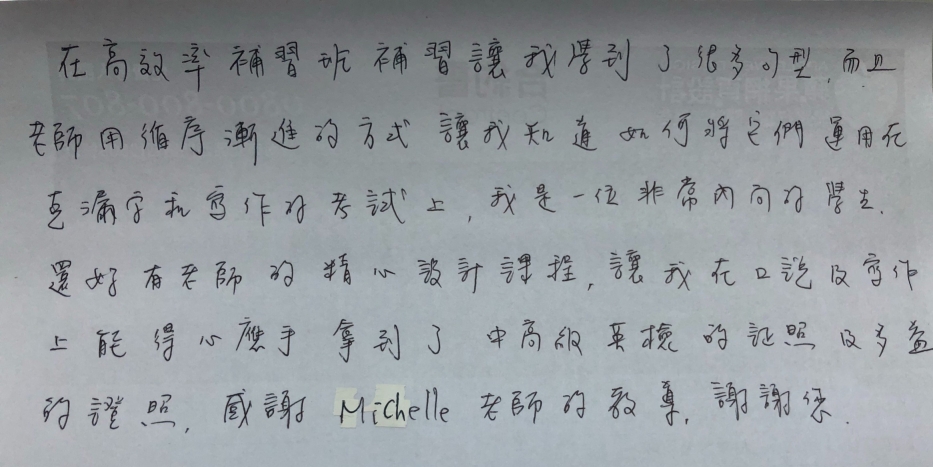 在高效率補習班補習讓我學到了很多句型,而且
老師用循序漸進的方式讓我知道如何將它們運用在
克漏字和寫作的考試上,我是一位非常內向的學生.
還好有老師的精心設計課程,讓我在口說及寫作
上能得心應手拿到了中高級英檢的証照及多益
的證照,感謝Michelle老師的教導,謝謝您.